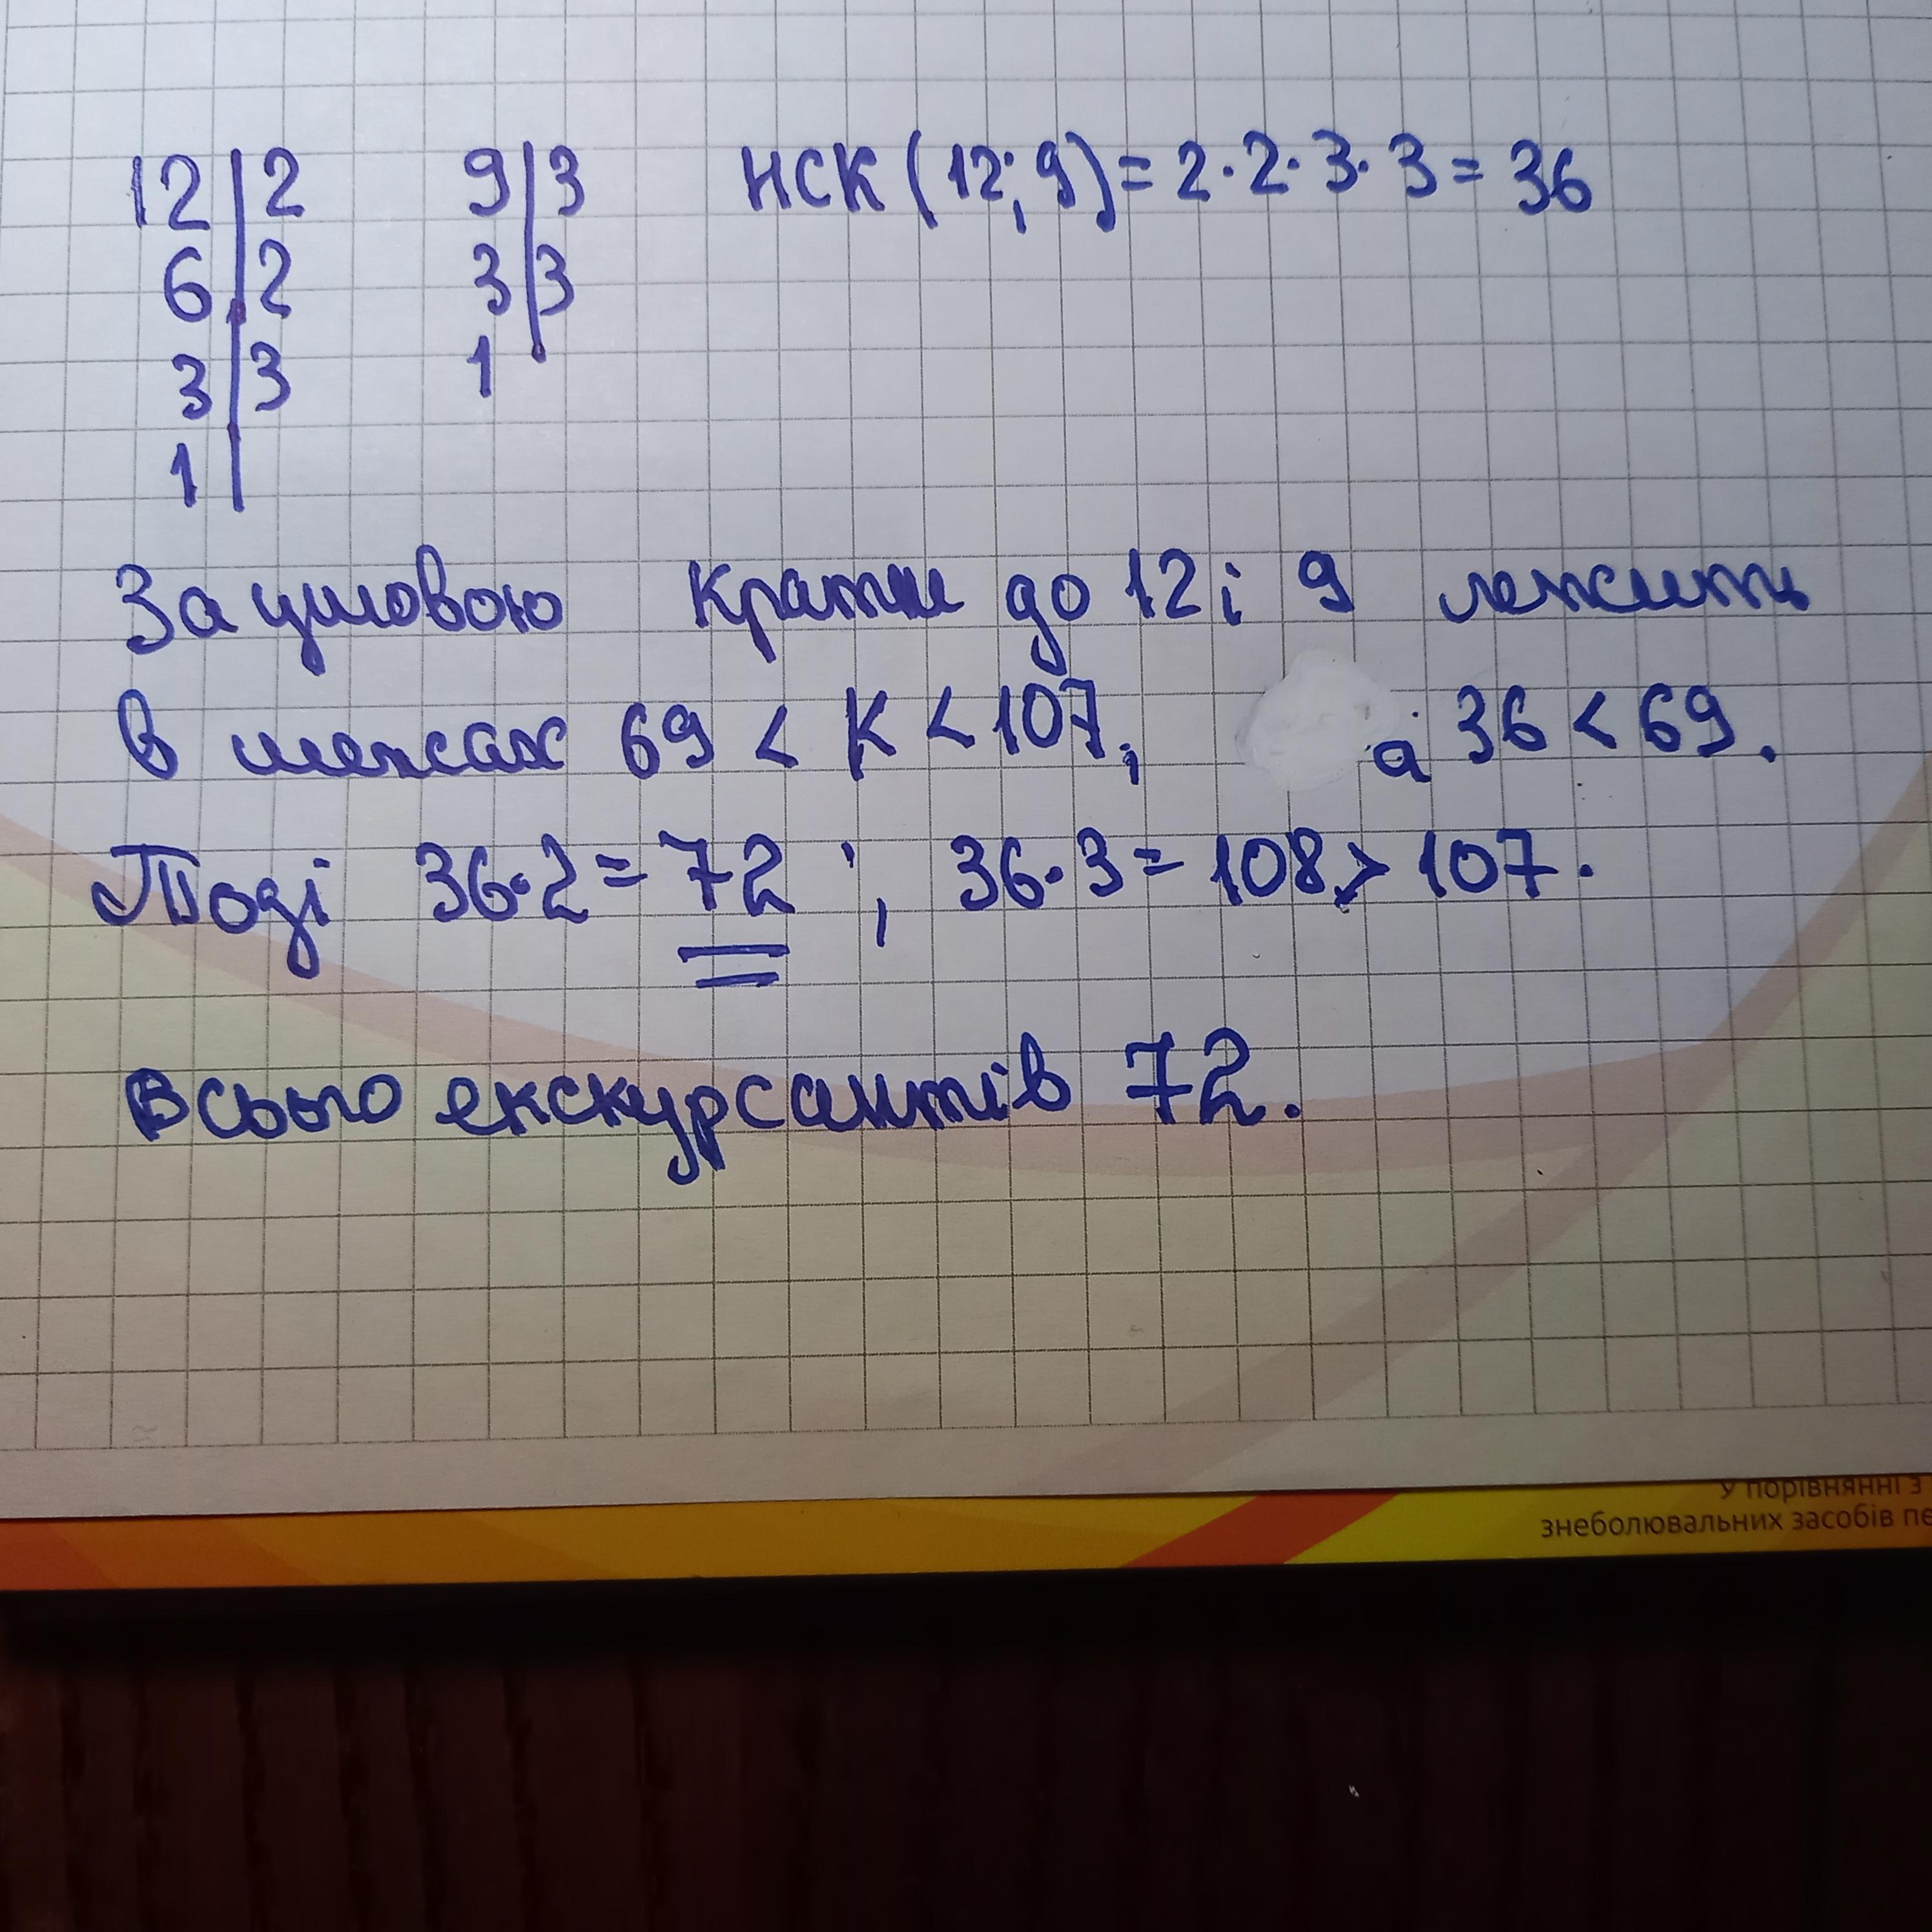 12 | 2 9 | 3 НСК (12; 9) = 2·2·3·3 = 36
6 | 2 3 | 3
3 | 3 1
1
За умовою кратне до 12 і 9 лежить
в межах 69 < К < 107, а 36 < 69.
Тоді 36·2 = 72 ; 36·3 = 108 > 107.
Всього екскурсантів 72.
У порівнянні з
знеболювальних засобів